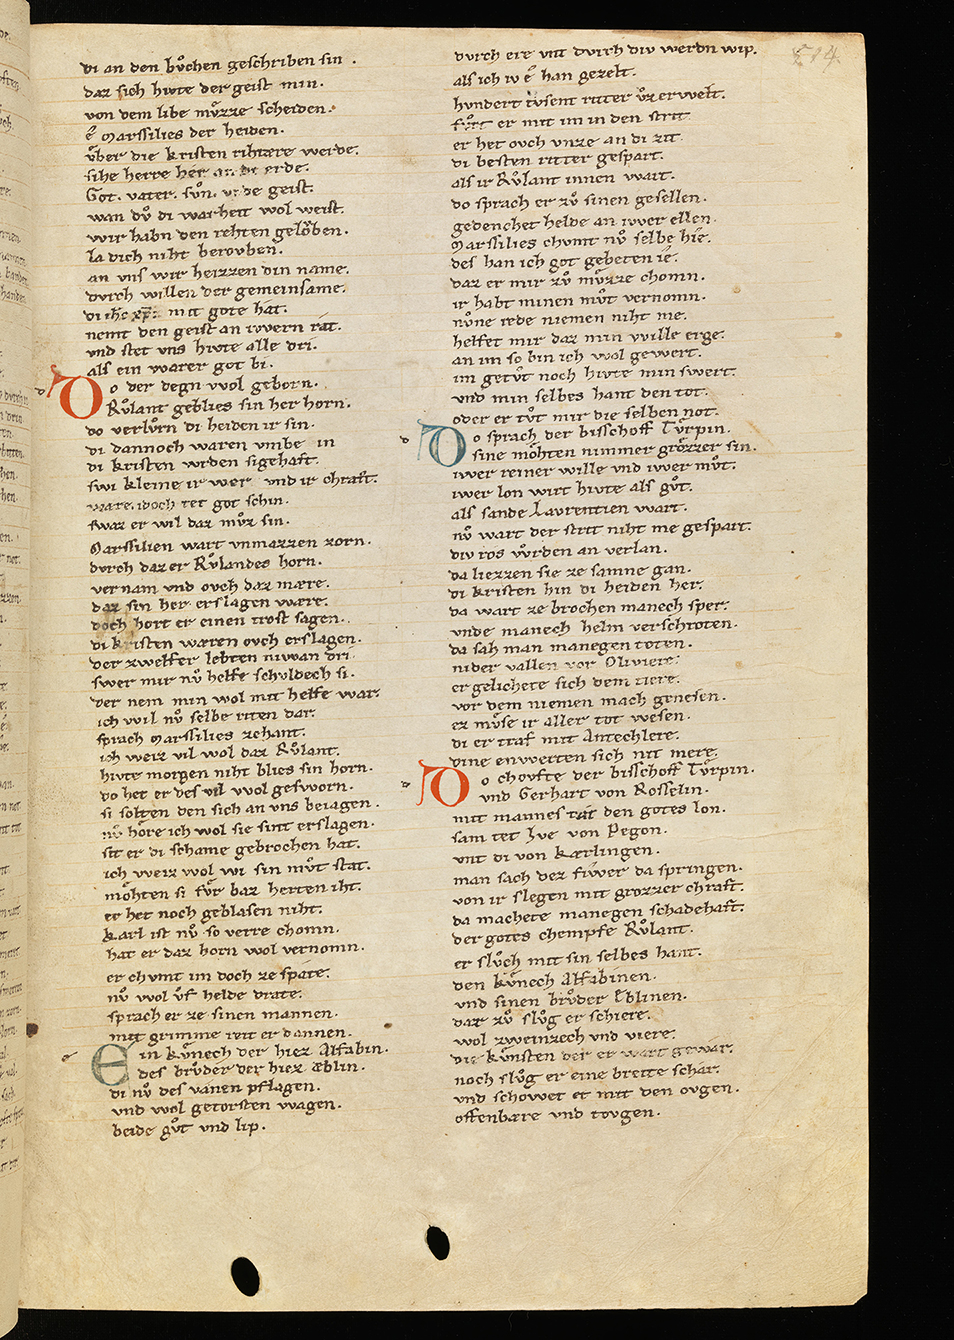 di an den bůchen geschriben sin .
daz sich hivte der geist min.
von dem libe můzze scheiden.
é Marssilies der heiden.
ůber die kristen rihtære werde.
sihe herre her an der erde.
Got. vater. sůn. vnde geist.
wan dů di warheit wol weist.
wir habn den rehten gelǒben.
la dich niht berovben.
an vns wir heizzen din name.
dvrch willen der gemeinsame.
di ih̅c xp̅c mit gote hat.
nemt den geist an iwern rat.
vnd stet vns hivte alle dri.
als ein warer got bi.
Do der degn wol geborn.
Růlant geblies sin her horn.
do verlůrn di heiden ir sin.
di dannoch waren vmbe in
di kristen wrden sigehaft.
swi kleine ir wer vnd ir chraft.
ware. idoch tet got schin.
swaz er wil daz můz sin.
Marssilien wart vnmazzen zorn.
dvrch daz er Růlandes horn.
vernam vnd ovch daz mære.
daz sin her erslagen wære.
doch hort er einen trost sagen.
di kristen waren ovch erslagen.
der zwelfer lebten niwan dri
swer mir nů helfe schvldech si.
der nem min wol mit helfe war.
ich wil nů selbe riten dar.
sprach Marssilies zehant.
ich weiz vil wol daz Růlant.
hivte morgen niht blies sin horn.
do het er des vil wol gesworn.
si solten den sich an vns beiagen.
nů hôre ich wol sie sint erslagen.
sit er di schame gebrochen hat.
ich weiz wol wi sin můt stat.
môhten si fůr baz herten iht.
er het noch geblasen niht.
Karl ist nů so verre chomn.
hat er daz horn wol vernomn.
er chvmt im doch ze spate.
nů wol ůf helde drate.
sprach er ze sinen mannen.
mit grimme reit er dannen.
Ein kůnech der hiez Alfabin.
des brůder der hiez æblin.
di nů des vanen pflagen.
vnd wol getorsten wagen.
beide gůt vnd lip.
dvrch ere vnt dvrch div werdn wip.
als ich iv é han gezelt.
hvndert tvsent ritter ůz erwelt.
fůrt er mit im in den strit
er het ovch vnze an di zit
di besten ritter gespart.
als ir Růlant innen wart.
do sprach er zů sinen gesellen.
gedenchet helde an iwer ellen.
Marssilies chvmt nů selbe hie.
des han ich got gebeten ie.
daz er mir zů můzze chomn.
ir habt minen můt vernomn.
nůne rede niemen niht me.
helfet mir daz min wille erge.
an im so bin ich wol gewert.
im getůt noch hivte min swert.
vnd min selbes hant den tot.
oder er tůt mir die selben not.
Do sprach der bisschoff Tůrpin.
sine môhten nimmer grôzzer sin.
iwer reiner wille vnd iwer můt.
iwer lon wirt hivte als gůt.
als sande Lavrentien wart.
nů wart der strit niht me gespart.
div ros wůrden an verlan.
da liezzen sie ze samne gan.
di kristen hin di heiden her.
da wart ze brochen manech sper.
vnde manech helm verschroten.
da sah man manegen toten.
nider vallen vor Oliviere.
er gelichete sich dem tiere.
vor dem niemen mach genesen.
ez můse ir aller tot wesen.
di er traf mit Antechlere.
dine enwerten sich nit mere.
Do chovfte der bisschoff Tůrpin.
vnd Gerhart von Rosselin.
mit mannes tat den gotes lon.
sam tet Ive von Pegon.
vnt di von Kærlingen.
man sach dez fiwer da springen.
von ir slegen mit grozzer chraft.
da machete manegen schadehaft.
der gotes chempfe Růlant.
er slůch mit sin selbes hant.
den kůnech Alfabinen.
vnd sinen brůder Eblinen.
dar zů slůg er schiere.
wol zweinzech vnd viere.
die kůnsten der er wart gewar.
noch slůg er eine breite schar.
vnd schowet er mit den ovgen.
offenbære vnd tovgen.